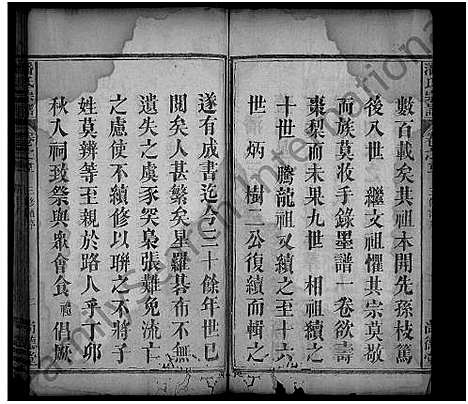 數百載矣其祖本開先孫枝篤
後入世 繼文祖懼其宗莫敬
而族莫收手錄墨譜一卷欲壽
棗梨而未果九世 相祖續之
十世 騰龍祖又續之至十六
世 炳 樹二公復續而輯之
遂有成書迄今三十餘年世已
閱矣人甚繁矣星羅碁布不無
遺失之虞豕突梟張難免流亡
之慮使不續修以聯之不將子
姓莫辨等至親於路人乎丁卯
秋入祠致祭與眾會食 禮 倡厥
尚德堂
FamilySearch International